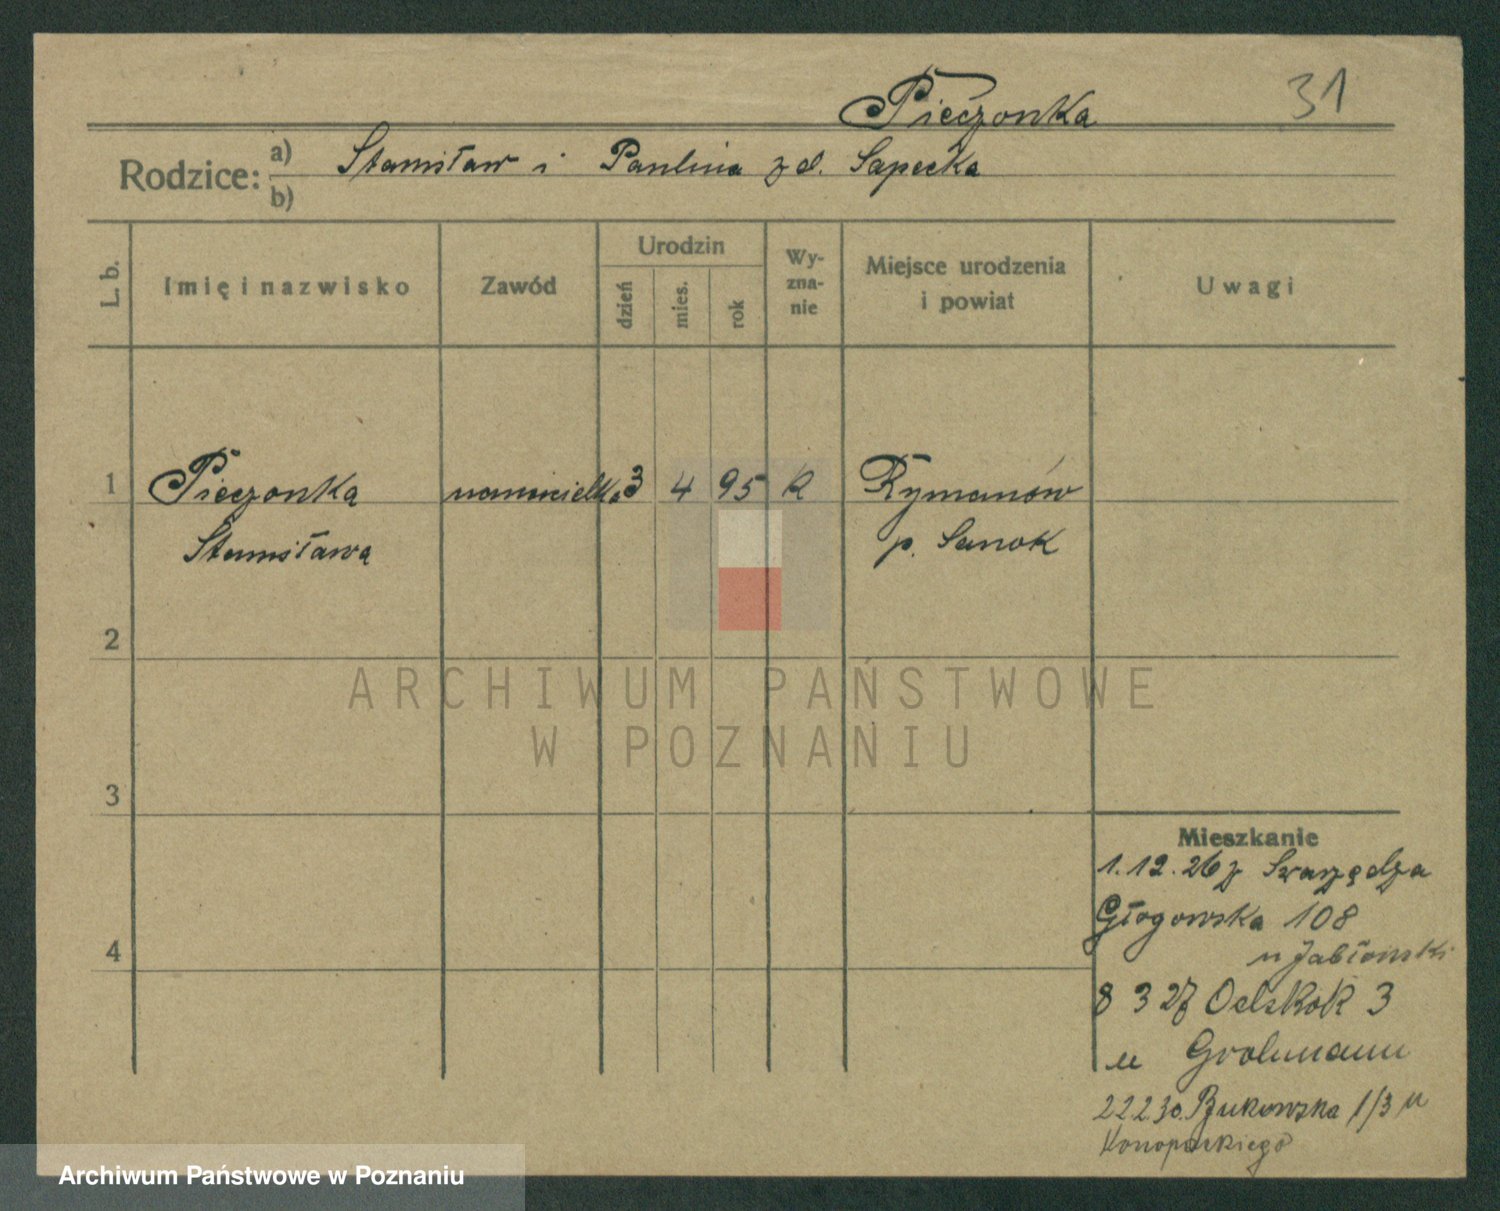 Pieczonka
31
Rodzice: a) Stanisław i Paulina z d. Sapecka
b)
L. b.
Imię i nazwisko
Zawód
Urodzin
dzień
mies.
rok
Wy-
zna-
nie
Miejsce urodzenia
i powiat
Uwagi
1 Pieczonka nauczycielka 3 4 95 R Rymanów
Stanisława p. Sanok
2
3
4
Mieszkanie
1.12.26 z Swarzędza
Głogowska 108
u Jabłonski
8 3 27 3
u Grohmann
22 2 30. Bukowska 1/3 u
Konopackiego
ARCHIWUM PAŃSTWOWE
W POZNANIU
Archiwum Państwowe w Poznaniu